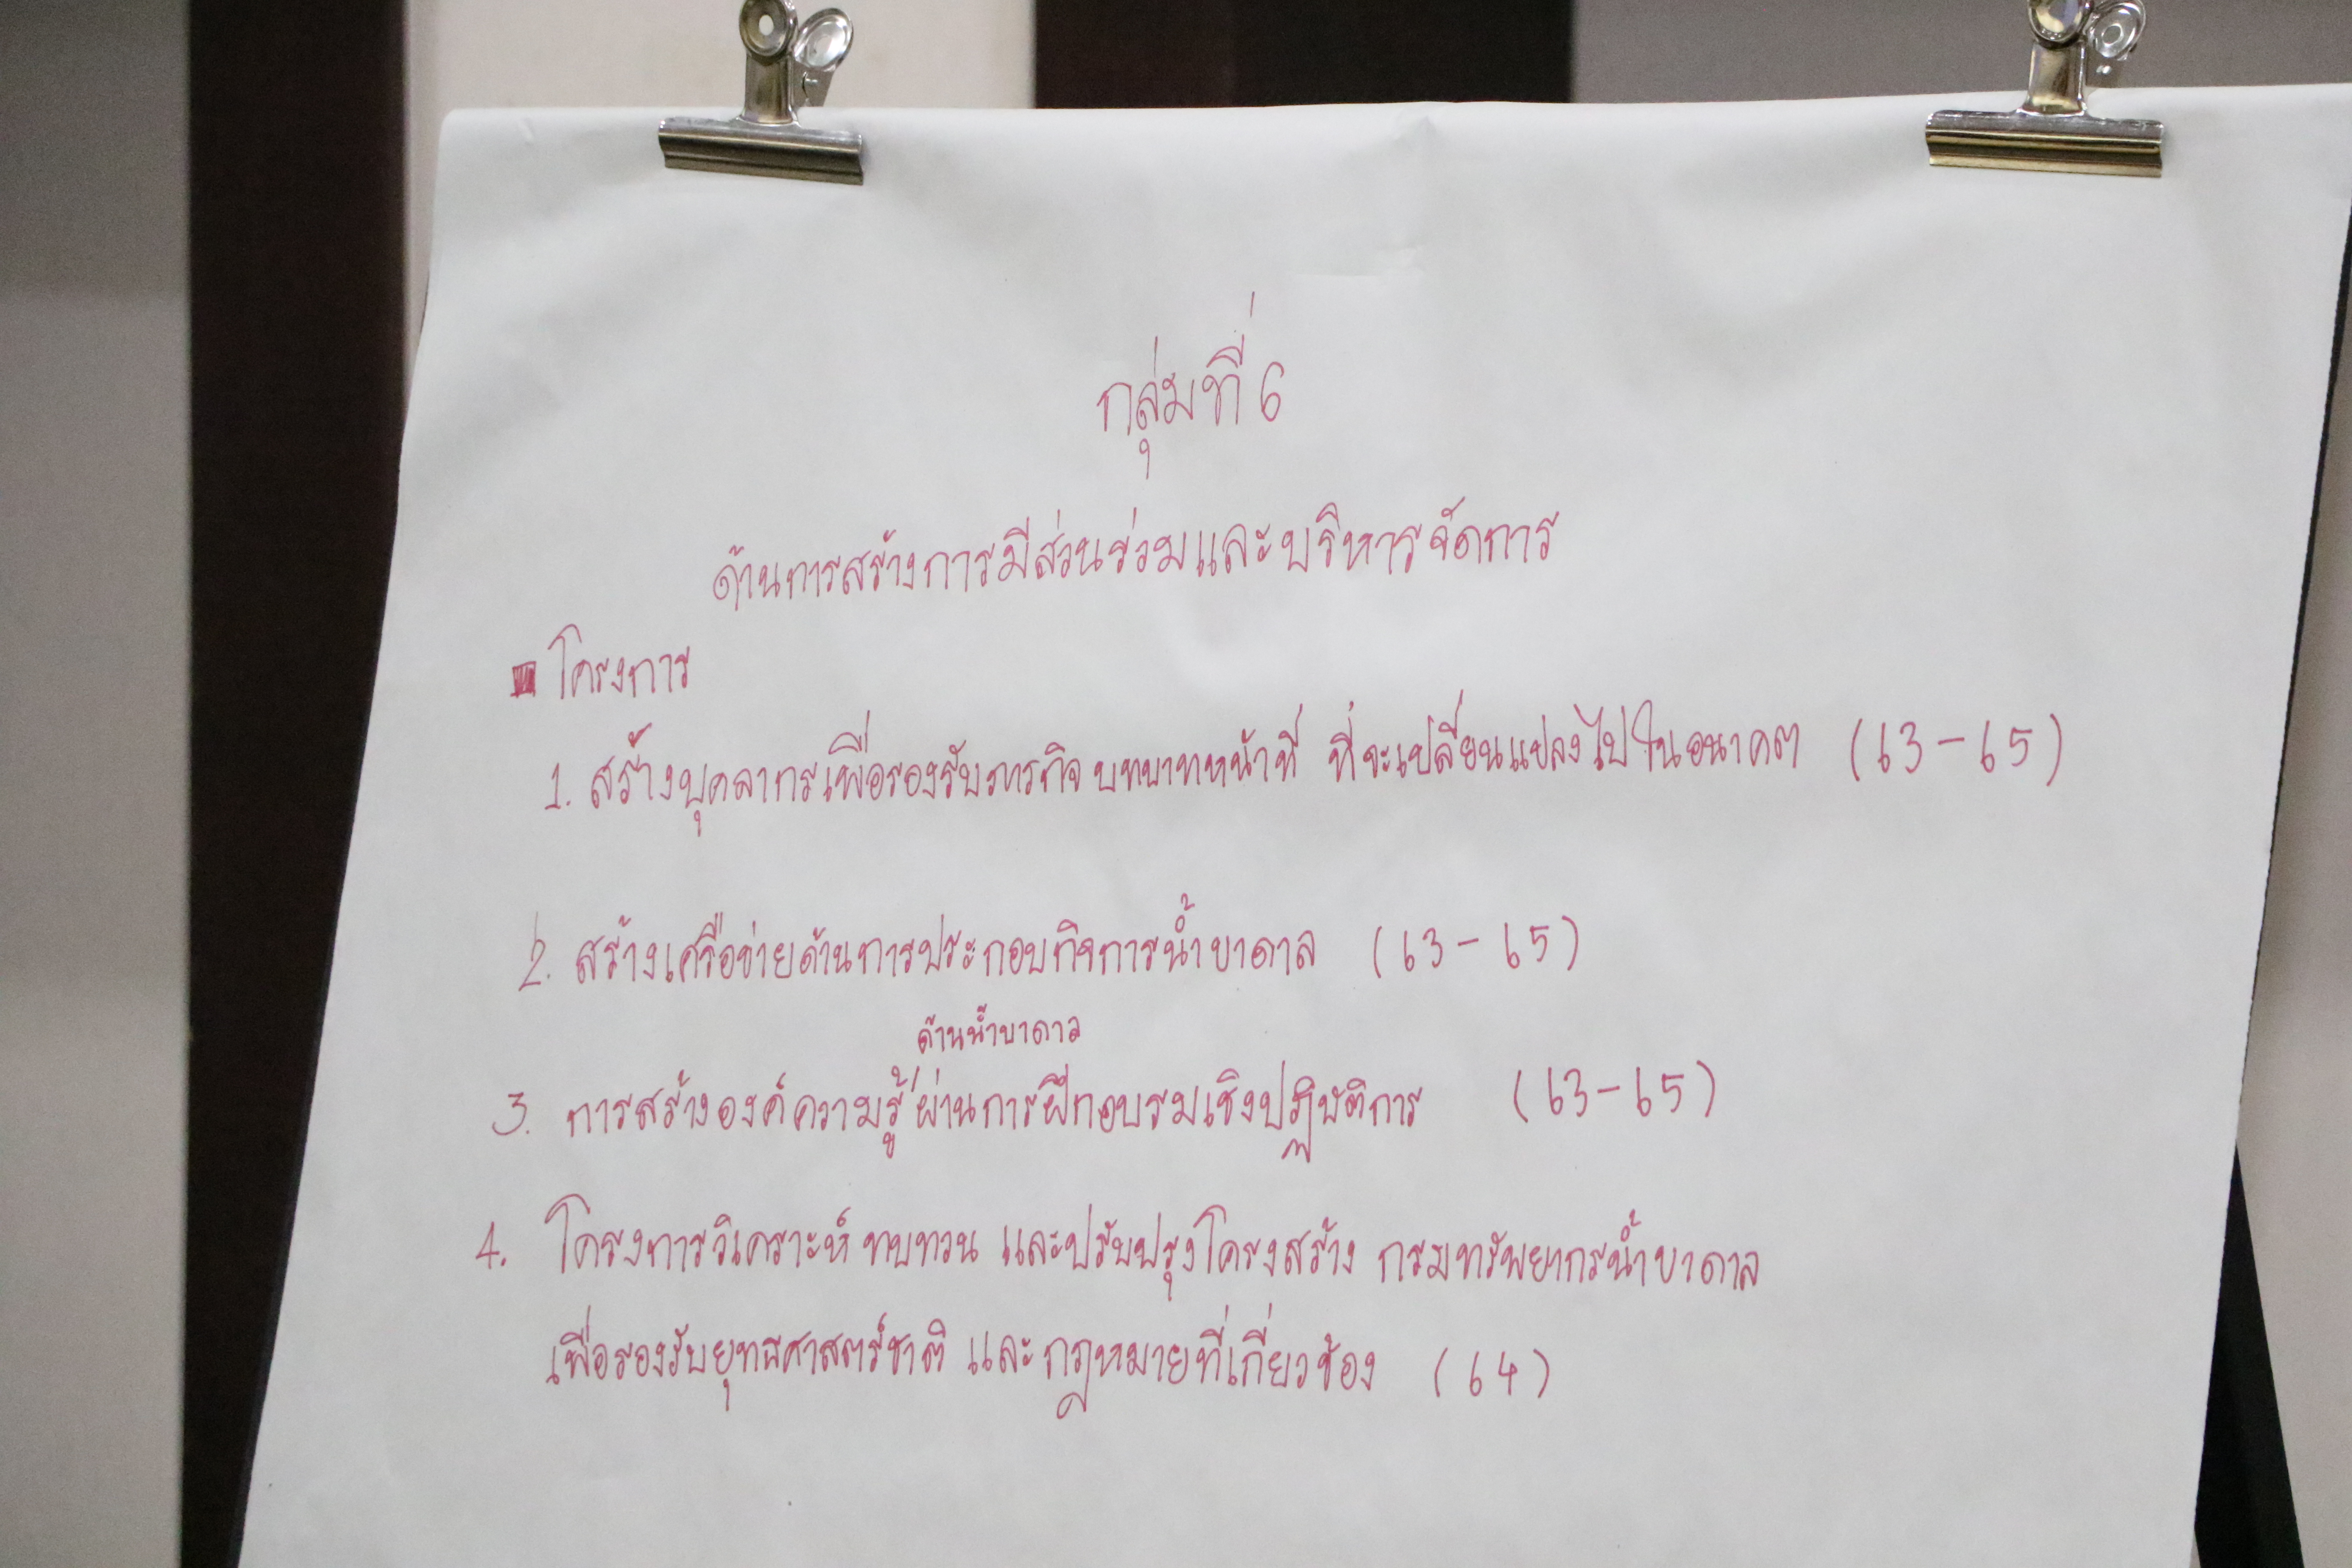 กลุ่มที่ 6
ด้านการสร้างการมีส่วนร่วมและบริหารจัดการ
โครงการ
1. สร้างบุคลากรเพื่อรองรับภารกิจ บทบาทหน้าที่ ที่จะเปลี่ยนแปลงไปในอนาคต (63-65)
2. สร้างเครือข่ายด้านการประกอบกิจการน้ำบาดาล (63-65)
ด้านน้ำบาดาล
3. การสร้างองค์ความรู้ ผ่านการฝึกอบรมเชิงปฏิบัติการ (63-65)
4. โครงการวิเคราะห์ ทบทวน และปรับปรุงโครงสร้าง กรมทรัพยากรน้ำบาดาล
เพื่อรองรับยุทธศาสตร์ชาติ และกฎหมายที่เกี่ยวข้อง (64)